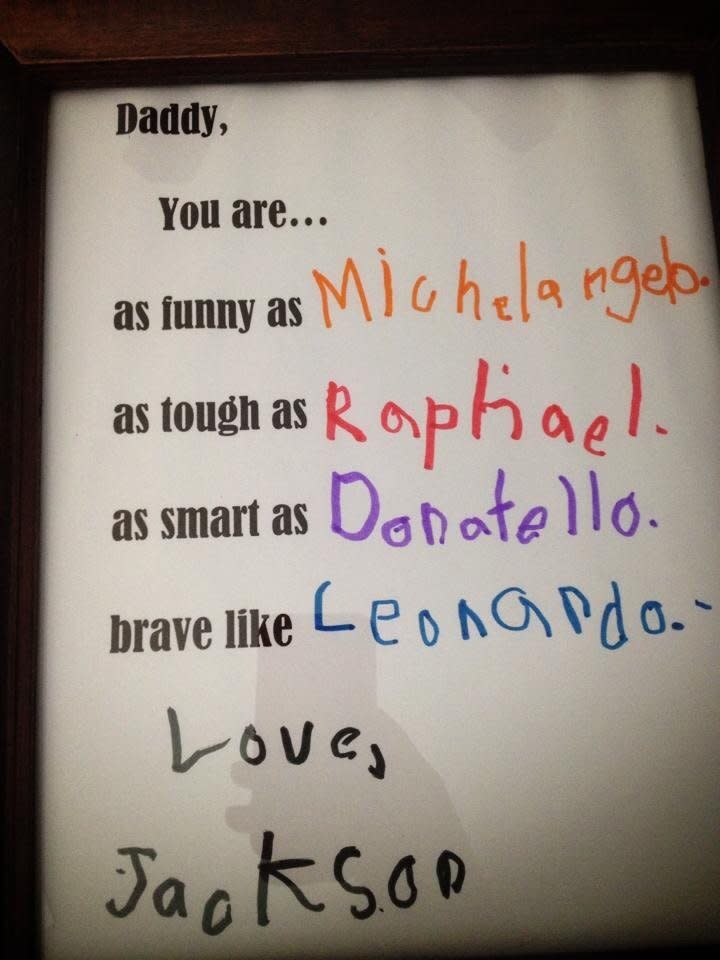 Daddy,
You are...
as funny as Michelangelo.
as tough as Raphael.
as smart as Donatello.
brave like Leonardo.-
Love,
Jackson